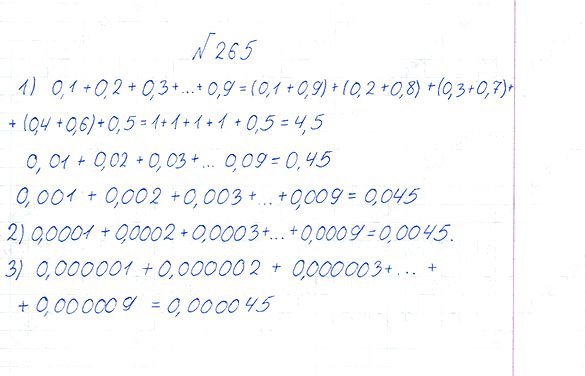 №265
1) 0,1+0,2+0,3+...+0,9=(0,1+0,9)+(0,2+0,8)+(0,3+0,7)+
+(0,4+0,6)+0,5=1+1+1+1+0,5=4,5
0,01+0,02+0,03+... 0,09=0,45
0,001+0,002+0,003+...+0,009=0,045
2) 0,0001+0,0002+0,0003+...+0,0009=0,0045.
3) 0,000001+0,000002+0,000003+...+
+0,000009=0,000045